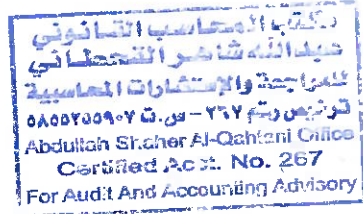 مكتب المحاسب القانوني
عبدالله شاهر القحطاني
للمراجعة والإستشارات المحاسبية
ترخيص رقم ٢٦٧ - س.ت ٥٨٥٥٢٥٥٩٠٧
Abdullah Shaher Al-Qahtani Office
Certified Acct. No. 267
For Audit And Accounting Advisory